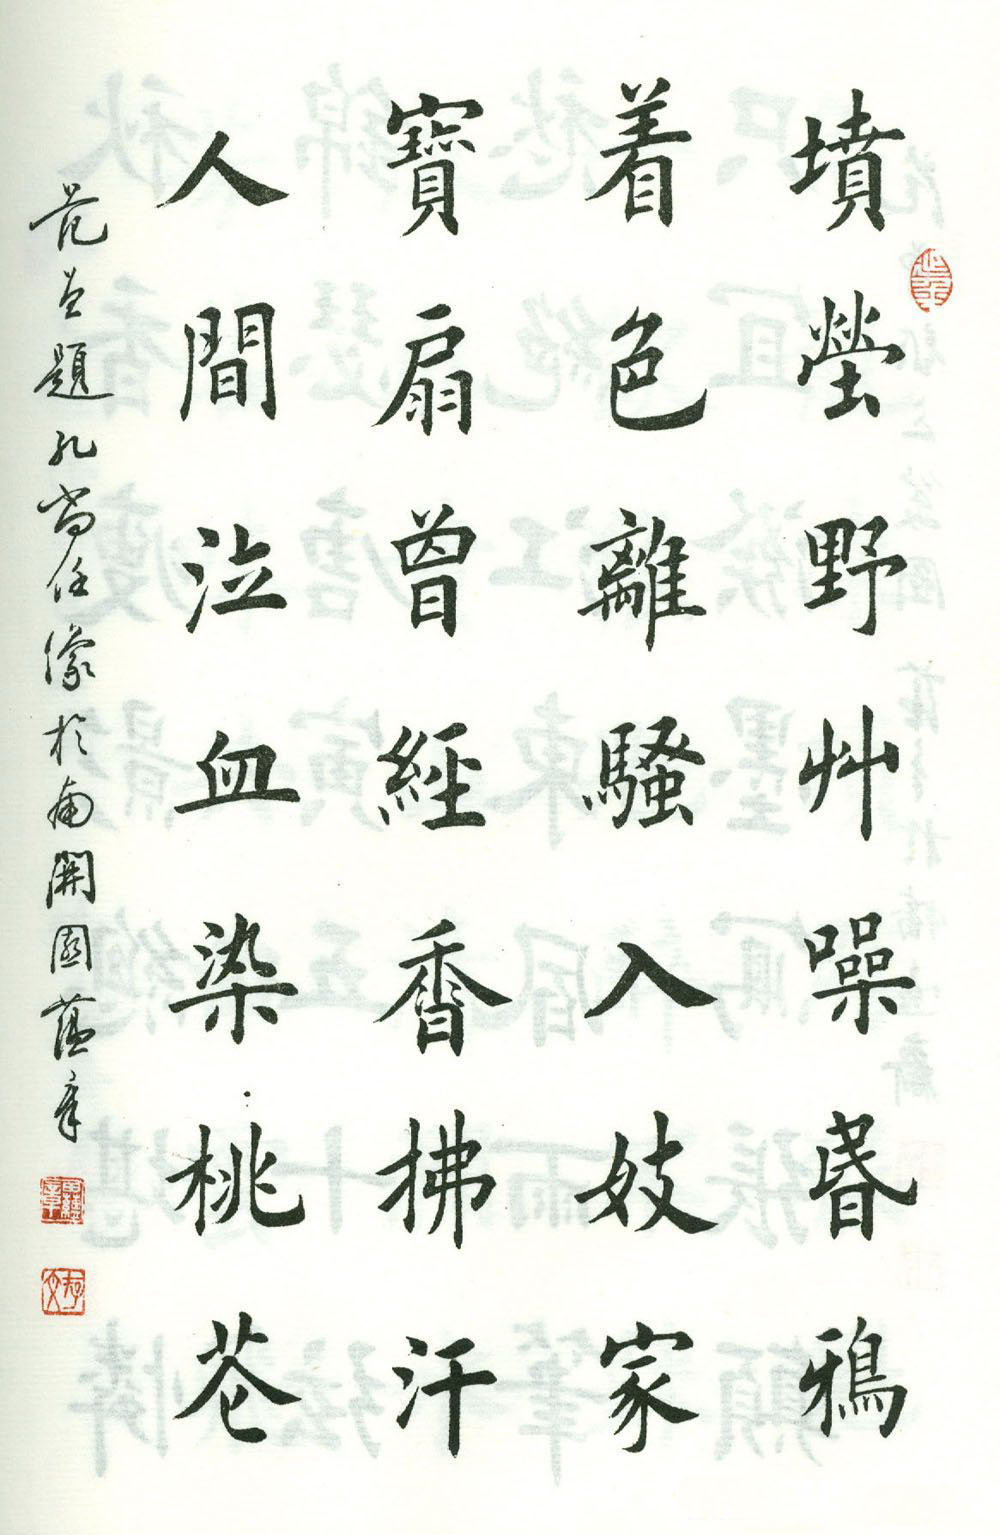 墳塋野艸噪昬鴉
着色離騷入妓家
寶扇曾經香拂汗
人間泣血染桃芲
范曾題孔尚任像於南開園蘊章